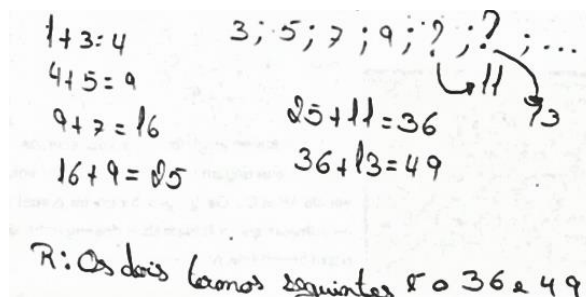 1+3=4
4+5=9
9+7=16
16+9=25
3; 5; 7; 9; ?; ?; ...
11
13
25+11=36
36+13=49
R: Os dois termos seguintes é o 36 e 49